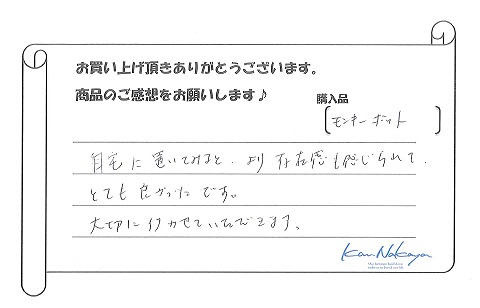 お買い上げ頂きありがとうございます。
商品のご感想をお願いします♪
購入品
[モンキーポット]
自宅に置いてみると、より存在感も感じられて、
とても良かったです。
大切に使わせていただきます。
Kan.Nakaya